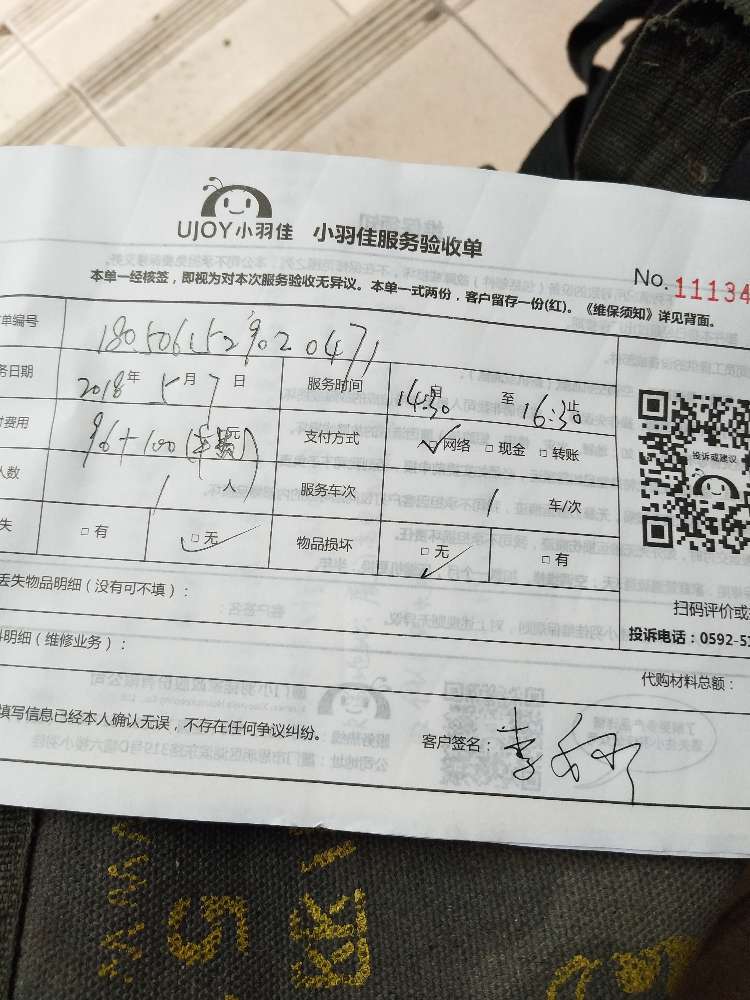 UJOY小羽佳 小羽佳服务验收单
No. 11134
本单一经核签，即视为对本次服务验收无异议。本单一式两份，客户留存一份(红)。《维保须知》详见背面。
单编号 180506152902 0471
务日期 2018年 5月 7日 服务时间 14:30 起 至 16:30 止
费用 96+100(车费)元 支付方式 ✓网络 □ 现金 □ 转账
人数 1 人 服务车次 1 车/次
失 □ 有 □ 无 ✓ 物品损坏 □ 无 ✓ □ 有
投诉或建议
丢失物品明细（没有可不填）：
扫码评价或
投诉电话：0592-51
明细（维修业务）：
代购材料总额：
填写信息已经本人确认无误，不存在任何争议纠纷。
客户签名：李